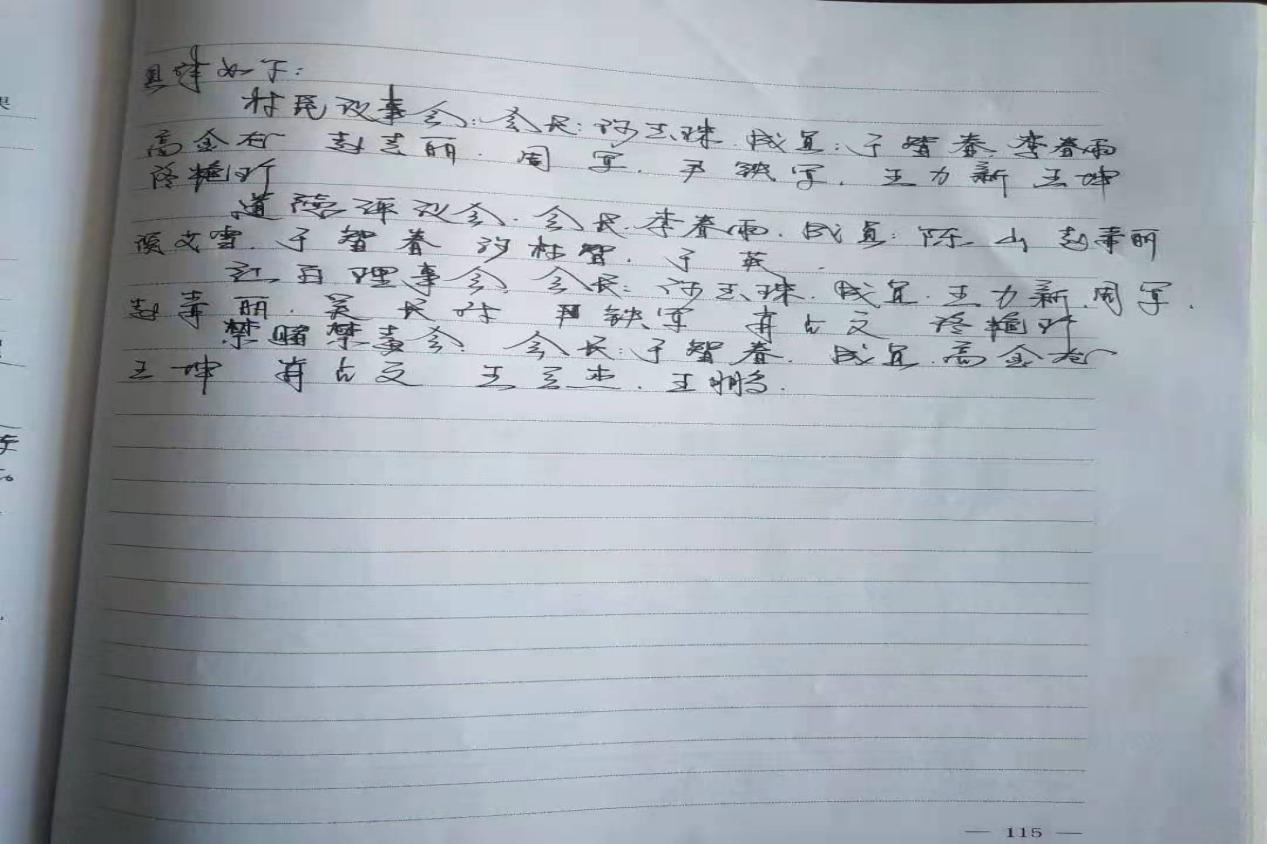 具体如下:
村民议事会:会长:许玉珠.成员:于智春.李春雨
高金 赵春丽.周军.尹铁军.王力新 王坤
佟艳
道德评议会.会长.李春雨.成员:陈山 赵春丽
文雪.于智春 许桂智.于英.
红白理事会 会长:许玉珠.成员.王力新.周军.
赵春丽.吴长 尹铁军 占文 佟艳
禁赌禁毒会:会长:于智春.成员.高金
王坤 占文 王杰.王鹏.
— 115 —